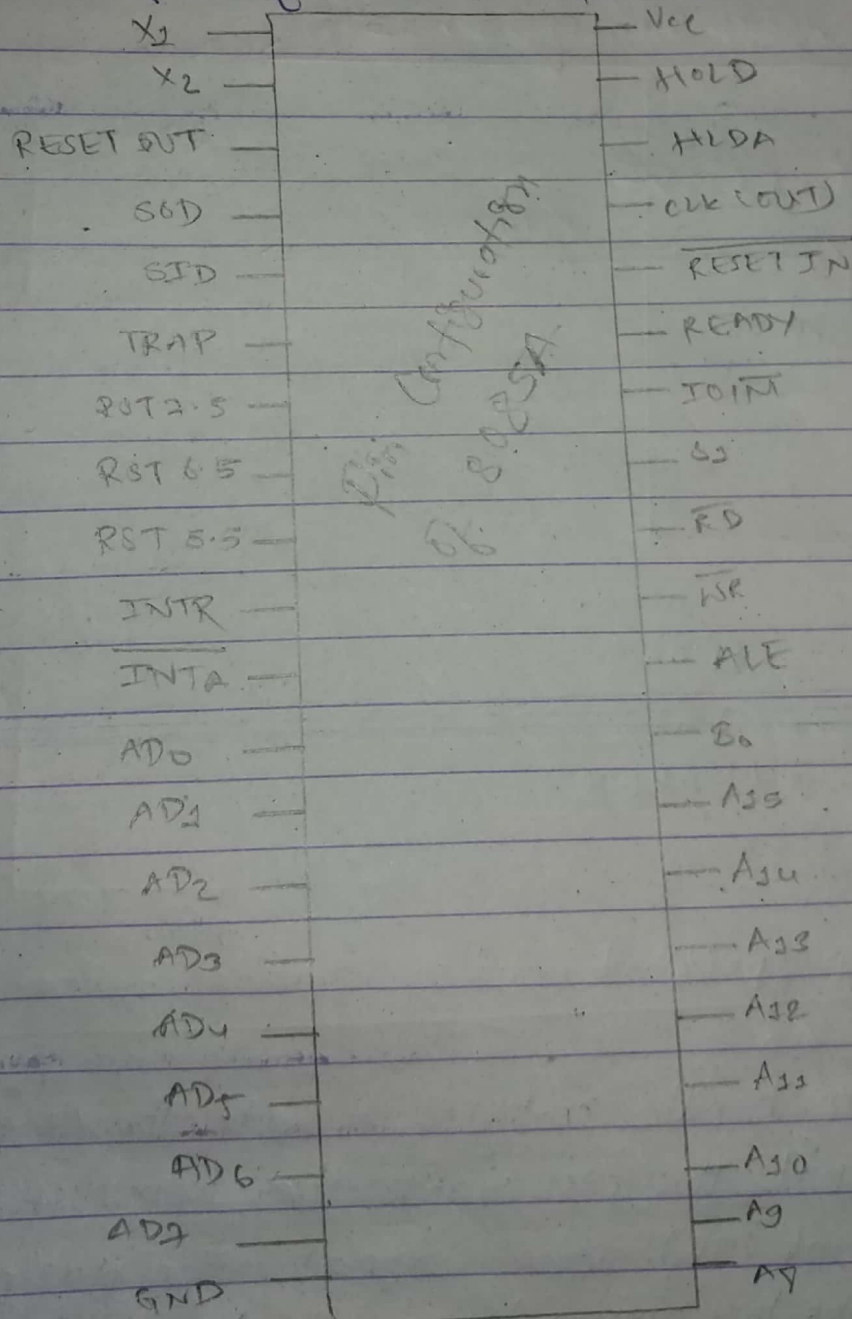 X1
X2
RESET OUT
SOD
SID
TRAP
RST 7.5
RST 6.5
RST 5.5
INTR
I̅N̅T̅A̅
AD0
AD1
AD2
AD3
AD4
AD5
AD6
AD7
GND
Pin Configuration
of 8085A
Vcc
HOLD
HLDA
CLK (OUT)
R̅E̅S̅E̅T̅ I̅N̅
READY
IO/M̅
S1
R̅D̅
W̅R̅
ALE
S0
A15
A14
A13
A12
A11
A10
A9
A8